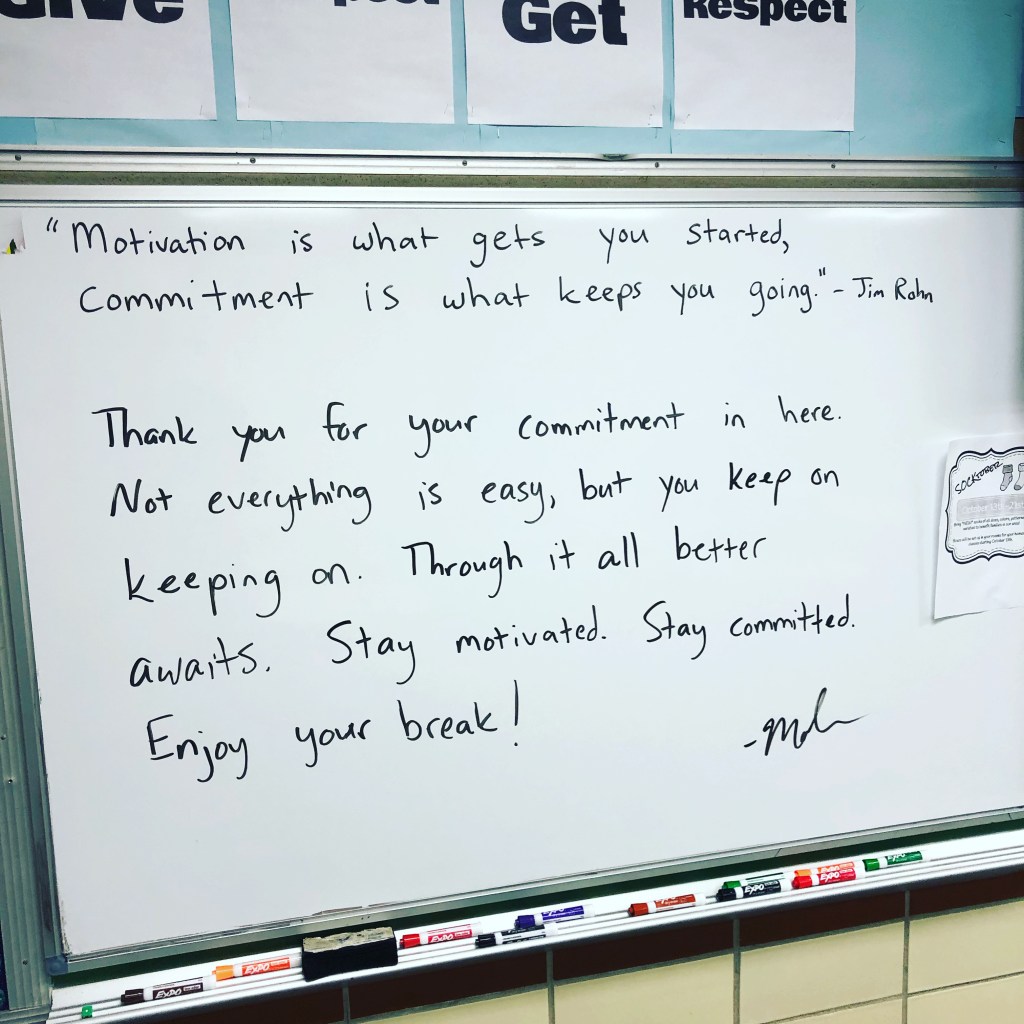 Give
Get
Respect
"Motivation is what gets you started,
Commitment is what keeps you going." - Jim Rohn
Thank you for your commitment in here.
Not everything is easy, but you keep on
keeping on. Through it all better
awaits. Stay motivated. Stay committed.
Enjoy your break!
SOCKTOBER
EXPO
EXPO
EXPO
EXPO
EXPO
EXPO